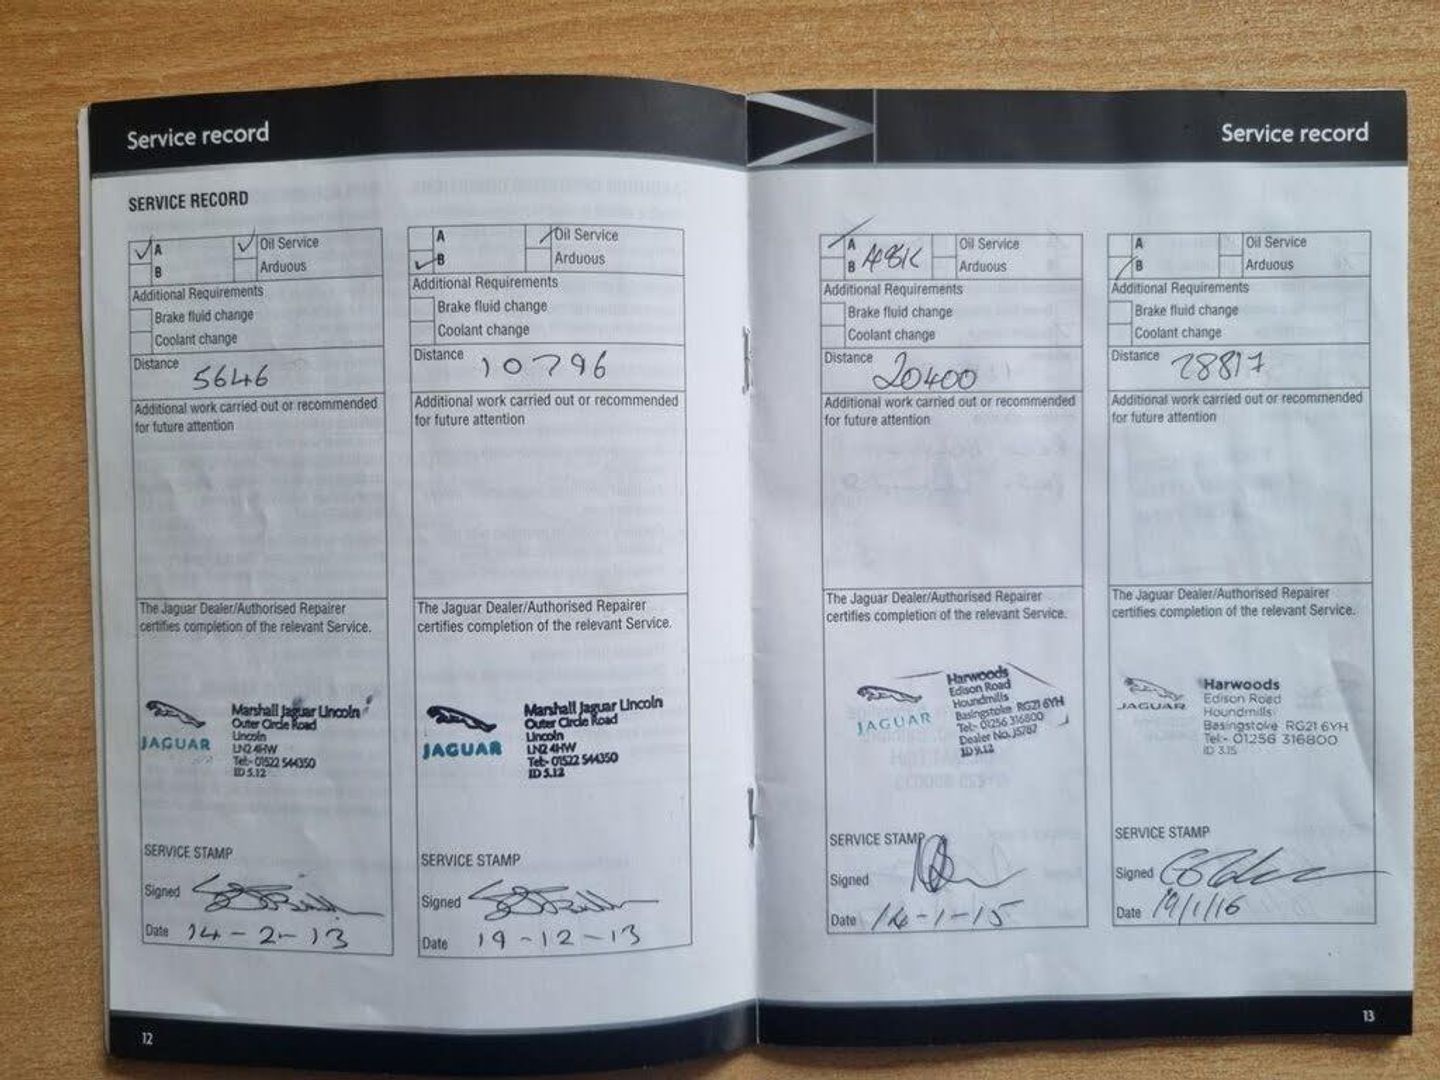 Service record
SERVICE RECORD
A
Oil Service
B
Arduous
Additional Requirements
Brake fluid change
Coolant change
Distance
5646
Additional work carried out or recommended
for future attention
The Jaguar Dealer/Authorised Repairer
certifies completion of the relevant Service.
JAGUAR
Marshall Jaguar Lincoln
Outer Circle Road
Lincoln
LN2 4HW
Tel:- 01522 544350
ID 5.12
SERVICE STAMP
Signed
Date 14-2-13
A
Oil Service
B
Arduous
Additional Requirements
Brake fluid change
Coolant change
Distance
10796
Additional work carried out or recommended
for future attention
The Jaguar Dealer/Authorised Repairer
certifies completion of the relevant Service.
JAGUAR
Marshall Jaguar Lincoln
Outer Circle Road
Lincoln
LN2 4HW
Tel:- 01522 544350
ID 5.12
SERVICE STAMP
Signed
Date 19-12-13
12
Service record
A
48K
Oil Service
B
Arduous
Additional Requirements
Brake fluid change
Coolant change
Distance
20400
Additional work carried out or recommended
for future attention
The Jaguar Dealer/Authorised Repairer
certifies completion of the relevant Service.
JAGUAR
Harwoods
Edison Road
Houndmills
Basingstoke RG21 6YH
Tel:- 01256 316800
Dealer No. J5787
ID 9.12
SERVICE STAMP
Signed
Date 14-1-15
A
Oil Service
B
Arduous
Additional Requirements
Brake fluid change
Coolant change
Distance
28817
Additional work carried out or recommended
for future attention
The Jaguar Dealer/Authorised Repairer
certifies completion of the relevant Service.
JAGUAR
Harwoods
Edison Road
Houndmills
Basingstoke RG21 6YH
Tel:- 01256 316800
ID 3.15
SERVICE STAMP
Signed
Date 19/1/16
13